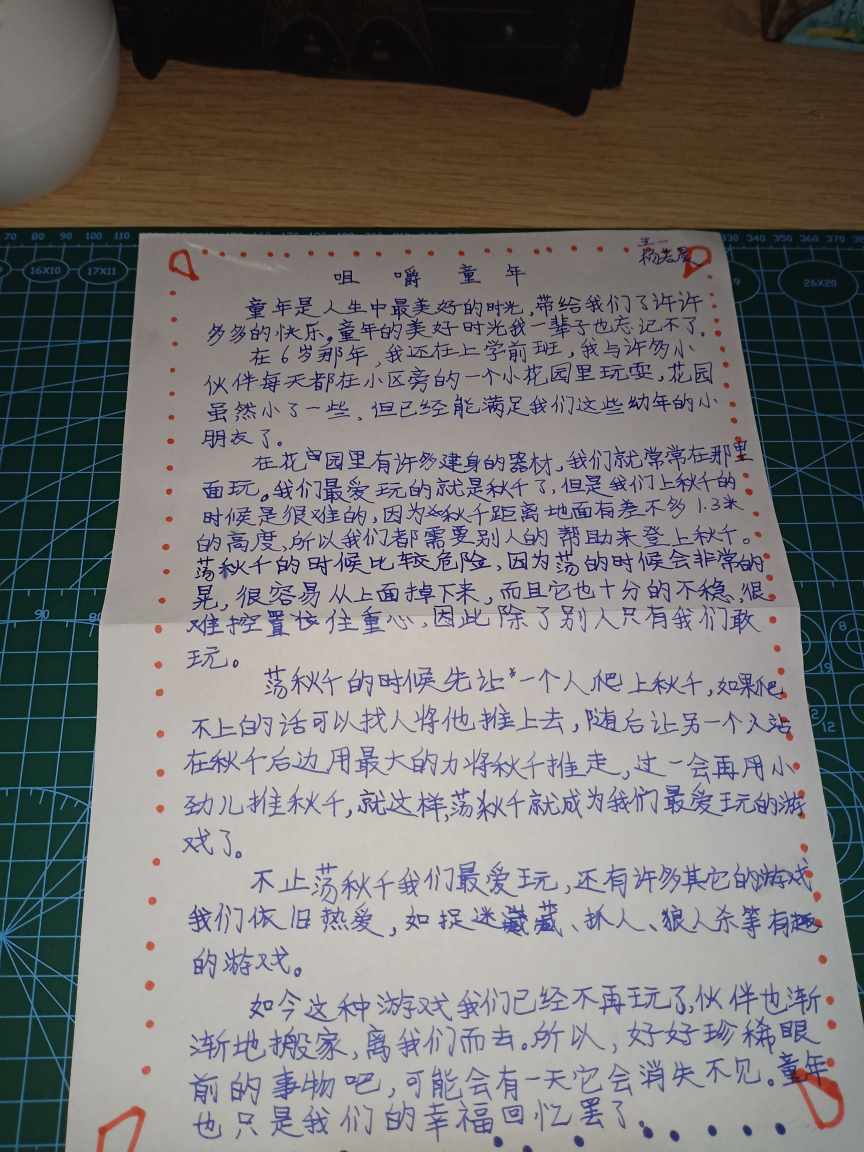 70 80 90 100 110
330 340 350 360 370
16X10 17X11
26X20
五一
咀嚼童年
童年是人生中最美好的时光,带给我们了许许
多多的快乐。童年的美好时光我一辈子也忘记不了。
在6岁那年,我还在上学前班,我与许多小
伙伴每天都在小区旁的一个小花园里玩耍,花园
虽然小了一些、但已经能满足我们这些幼年的小
朋友了。
在花园里有许多建身的器材,我们就常常在那里
面玩。我们最爱玩的就是秋千了,但是我们上秋千的
时候是很难的,因为秋千距离地面有差不多1.3米
的高度,所以我们都需要别人的帮助来登上秋千。
荡秋千的时候比较危险,因为荡的时候会非常的
晃,很容易从上面掉下来,而且它也十分的不稳,很
难控置住重心,因此除了别人只有我们敢
玩。
荡秋千的时候先让一个人爬上秋千,如果爬
不上的话可以找人将他推上去,随后让另一个人站
在秋千后边用最大的力将秋千推走,过一会再用小
劲儿推秋千,就这样,荡秋千就成为我们最爱玩的游
戏了。
不止荡秋千我们最爱玩,还有许多其它的游戏
我们依旧热爱,如捉迷藏、抓人、狼人杀等有趣
的游戏。
如今这种游戏我们已经不再玩了,伙伴也渐
渐地搬家,离我们而去。所以,好好珍稀眼
前的事物吧,可能会有一天它会消失不见。童年
也只是我们的幸福回忆罢了。
90
8
12